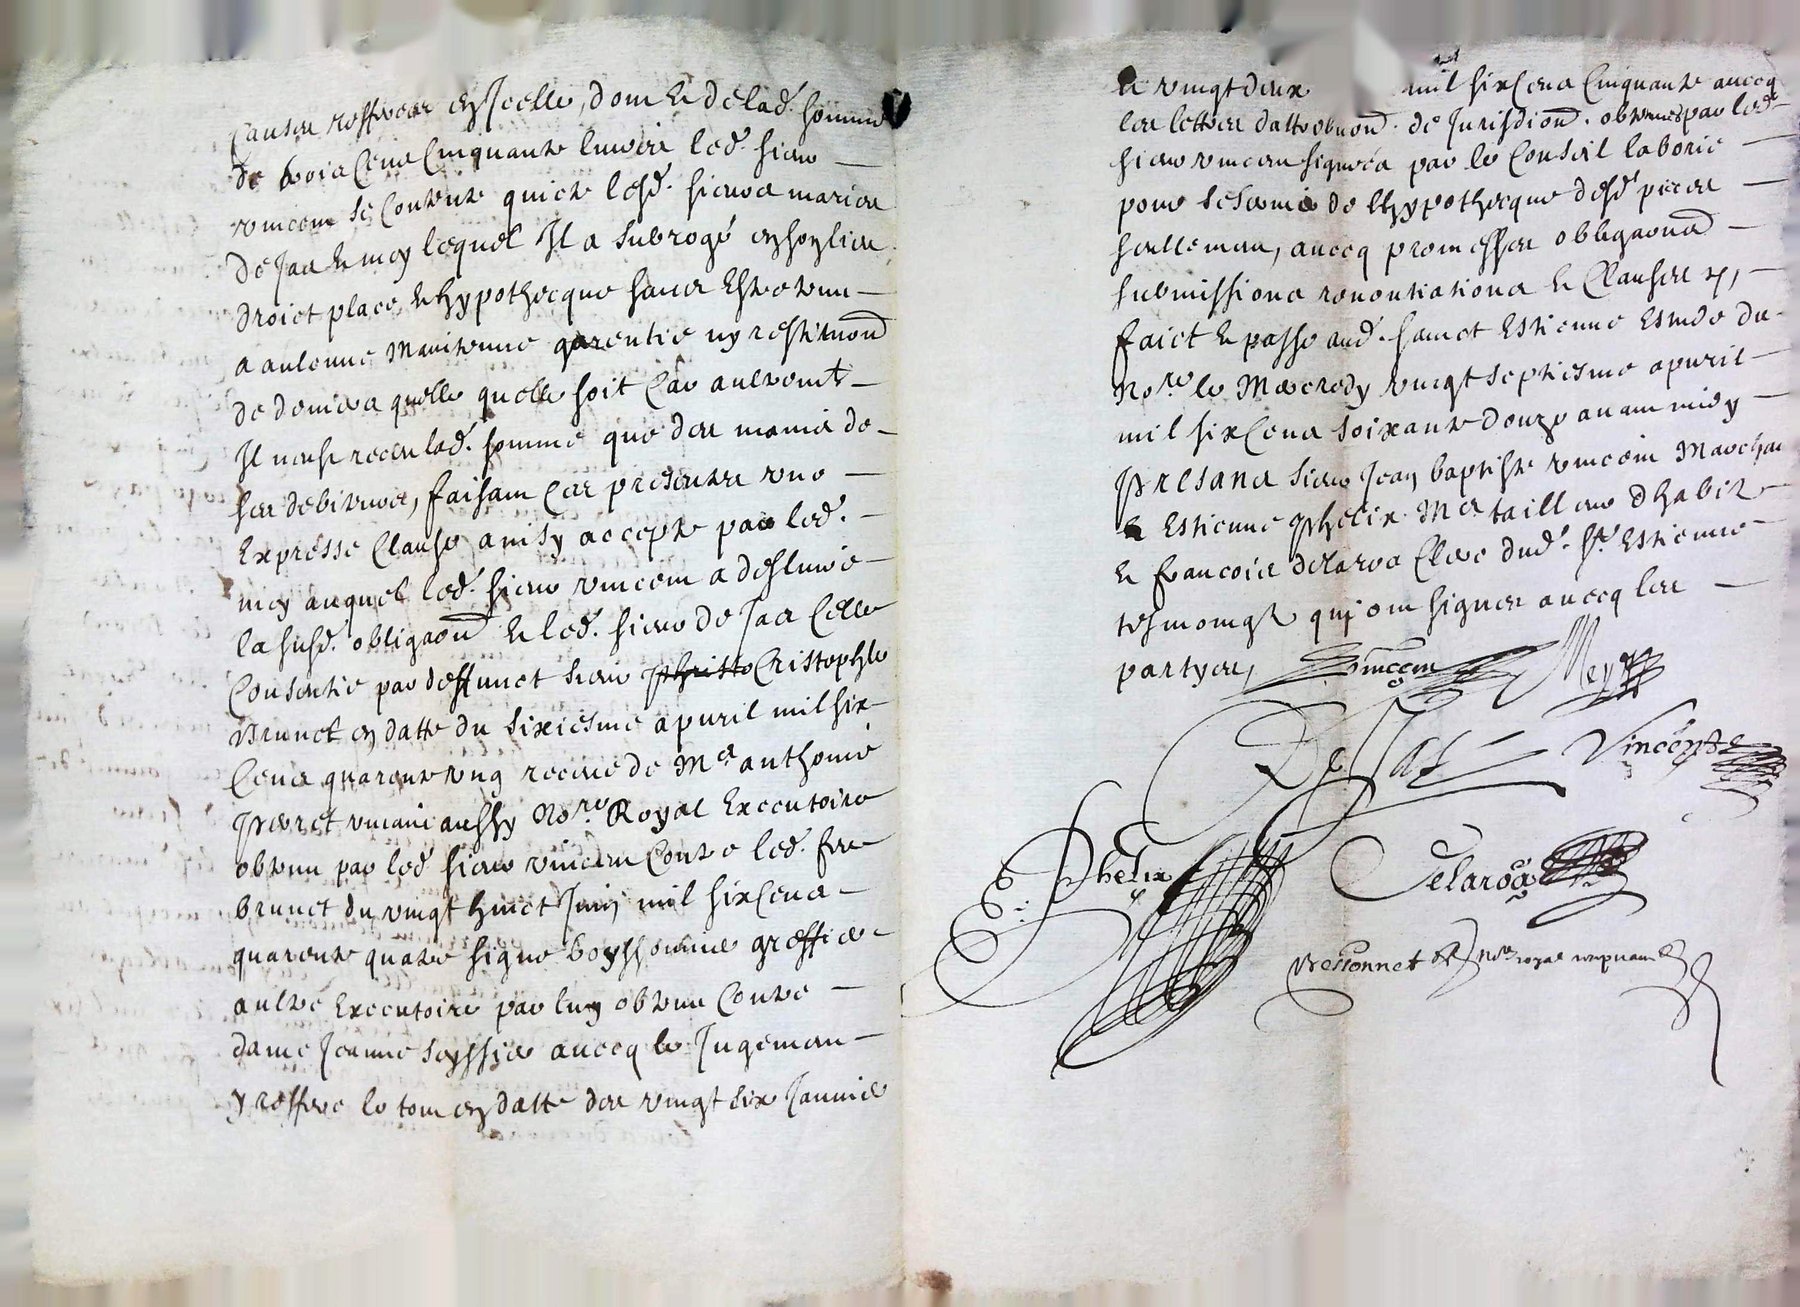 causes refferees en Icelle, dont & de lad. somme
de trois cens cinquante livres led. sieur
vincent se contente quicte lesd. sieurs maries
de Jas & moy lequel Il a subrogé en son lieu
droict place & hypothecque sans Estre tenu
a aulcune Maintenue garentie ny restituon̄
de deniers quelle quelle soit car aultremt
Il neust receu lad. somme que des mains de
ses debiteurs, faisant ces presentes une
Expresse clause ainsy accepte par led.
moy auquel led. sieur vincent a deslivré
la susd. obligaon̄ & led. sieur de Jas celle
consentie par deffunct sieur Cristophle
Brunet en datte du sixiesme apvril mil six
cens quarente ung receue de Me anthoine
Perret vivant aussy No.re Royal Executoire
obtenu par led sieur vincent contre led. feu
brunet du vingt huict Juin mil six cens
quarente quatre signe boyssonnier greffier
aultre Executoire par luy obtenu contre
dame Jeanne Seyssier avecq le Jugement
y reffere le tout en datte des vingt six Janvier
& vingt deux mil six Cens Cinquante avecq
les lettres dattribuon̄. de Jurisdion̄. obtenues par led.
sieur vincent signées par le Conseil laborie
pour seservir de lhypothecque desd pieces
seullement, avecq promesses obligaons
submissions renontiations & Clauses
faict & passe aud. sainct Estienne Estude du
No.re le Mercredy vingt septiesme apvril
mil six Cens soixante douze avant midy
Presans sieur Jean baptiste vincent Marchan
& Estienne Phelix Me tailleur dhabitz
& francois delaroa Clerc dud. St. Estienne
tesmoingz qui ont signes avecq les
partyes,
Vincent
De Jas
Vincent
E: Phelix
Delaroa
Bessonnet no.re royal